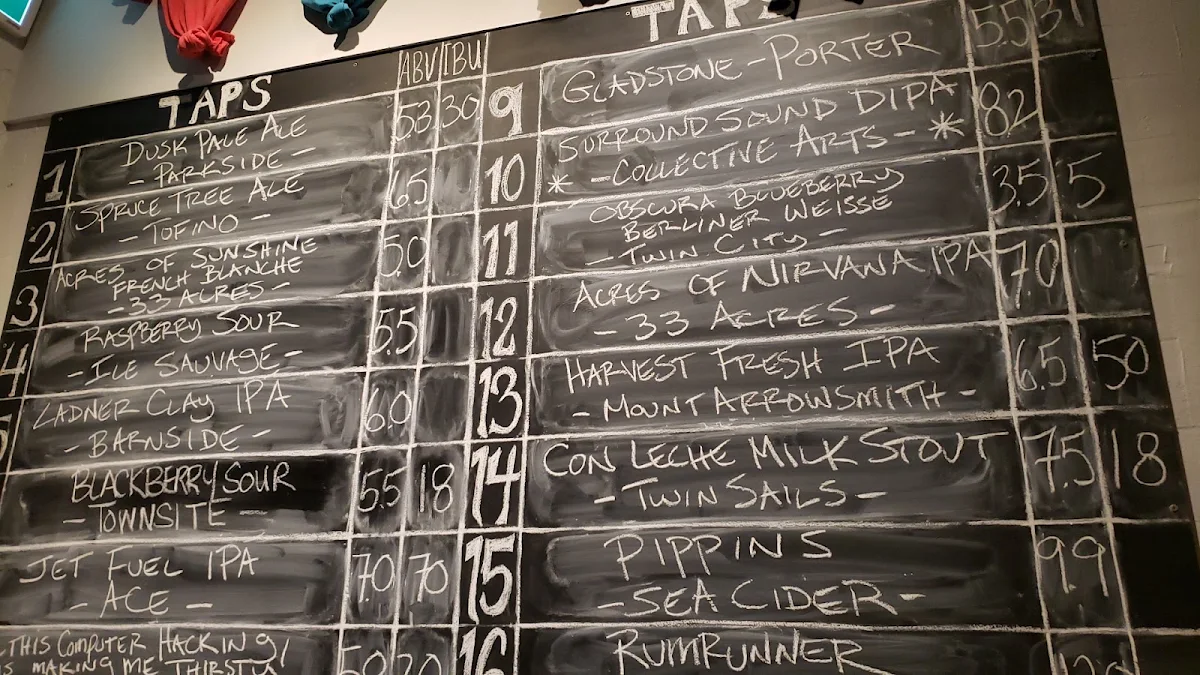 TAPS
ABV IBU
1
DUSK PALE ALE
- PARKSIDE -
5.3 30
2
SPRUCE TREE ALE
- TOFINO -
6.5
3
ACRES OF SUNSHINE
FRENCH BLANCHE
- 33 ACRES -
5.0
4
RASPBERRY SOUR
- ILE SAUVAGE -
5.5
5
LADNER CLAY IPA
- BARNSIDE -
6.0
BLACKBERRY SOUR
- TOWNSITE -
5.5 18
JET FUEL IPA
- ACE -
7.0 70
THIS COMPUTER HACKING
MAKING ME THIRSTY
TAPS
9
GLADSTONE - PORTER
5.5
10
SURROUND SOUND DIPA
* - COLLECTIVE ARTS - *
8.2
11
OBSCURA BLUEBERRY
BERLINER WEISSE
- TWIN CITY -
3.5 5
12
ACRES OF NIRVANA IPA
- 33 ACRES -
7.0
13
HARVEST FRESH IPA
- MOUNT ARROWSMITH -
6.5 50
14
CON LECHE MILK STOUT
- TWIN SAILS -
7.5 18
15
PIPPINS
- SEA CIDER -
9.9
16
RUMRUNNER